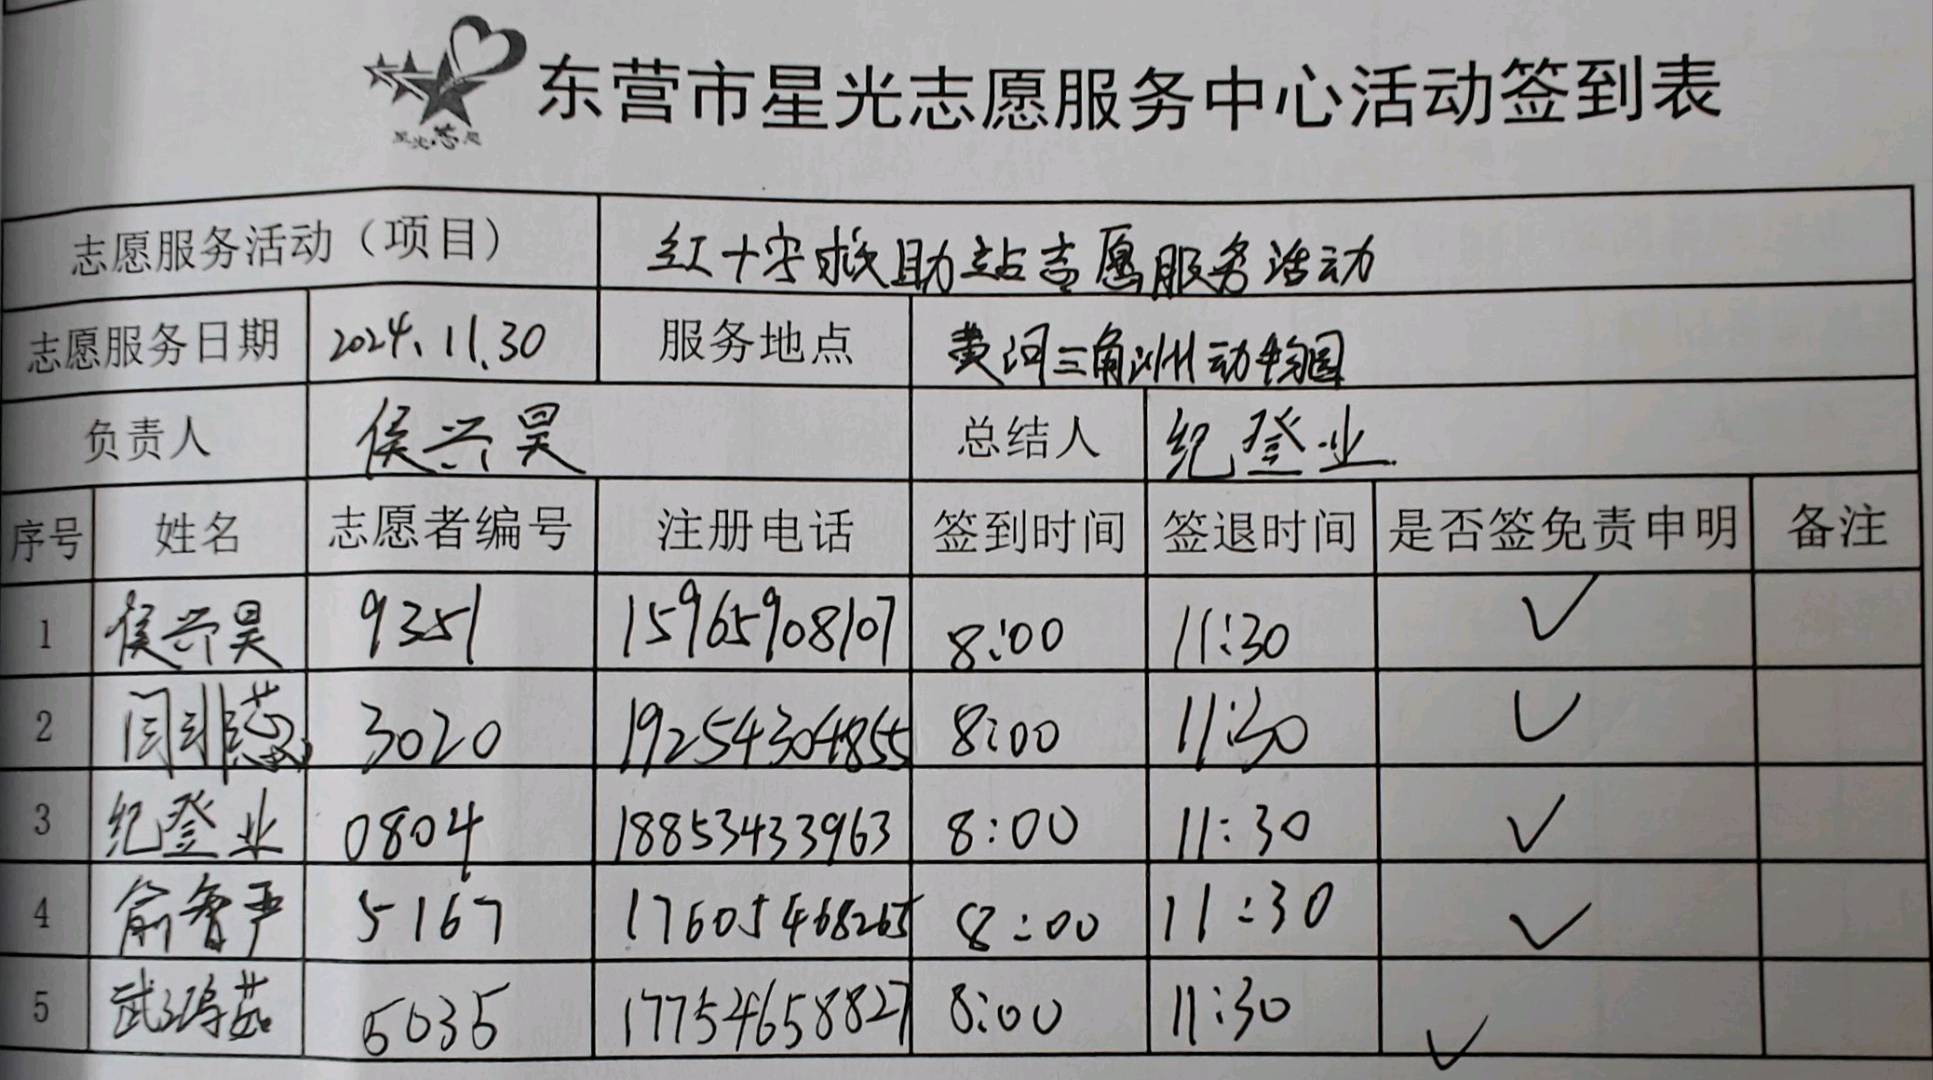 星光志愿
东营市星光志愿服务中心活动签到表
志愿服务活动（项目） 红十字救助站志愿服务活动
志愿服务日期 2024.11.30 服务地点 黄河三角洲动物园
负责人 侯兴昊 总结人 纪登业
序号 姓名 志愿者编号 注册电话 签到时间 签退时间 是否签免责申明 备注
1 侯兴昊 9351 15965908107 8:00 11:30 ✓
2 闫非 3020 19254304855 8:00 11:30 ✓
3 纪登业 0804 18853433963 8:00 11:30 ✓
4 俞春严 5167 17605468265 8:00 11:30 ✓
5 武 茹 5035 17754658827 8:00 11:30 ✓